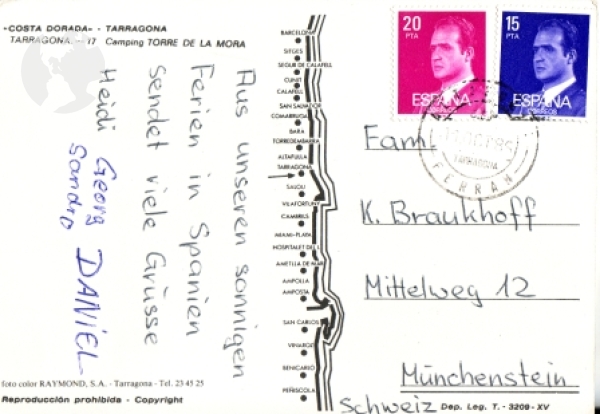 «COSTA DORADA» - TARRAGONA
TARRAGONA. - 17 Camping TORRE DE LA MORA
Aus unseren sonnigen
Ferien in Spanien
sendet viele Grüsse
Heidi Georg
Sandro DANIEL
foto color RAYMOND, S.A. - Tarragona - Tel. 23 45 25
Reproducción prohibida - Copyright
BARCELONA
SITGES
SEGUR DE CALAFELL
CUNIT
CALAFELL
SAN SALVADOR
COMARRUGA
BARA
TORREDEMBARRA
ALTAFULLA
TARRAGONA
SALOU
VILAFORTUNY
CAMBRILS
MIAMI-PLAYA
HOSPITALET DEL I.
AMETLLA DE MAR
AMPOLLA
AMPOSTA
SAN CARLOS
VINAROZ
BENICARLO
PEÑISCOLA
20
PTA
ESPAÑA
15
PTA
ESPAÑA
OCT 85
TARRAGONA
FERRAN
Fam.
K. Braukhoff
Mittelweg 12
Münchenstein
Schweiz
Dep. Leg. T. - 3209 - XV